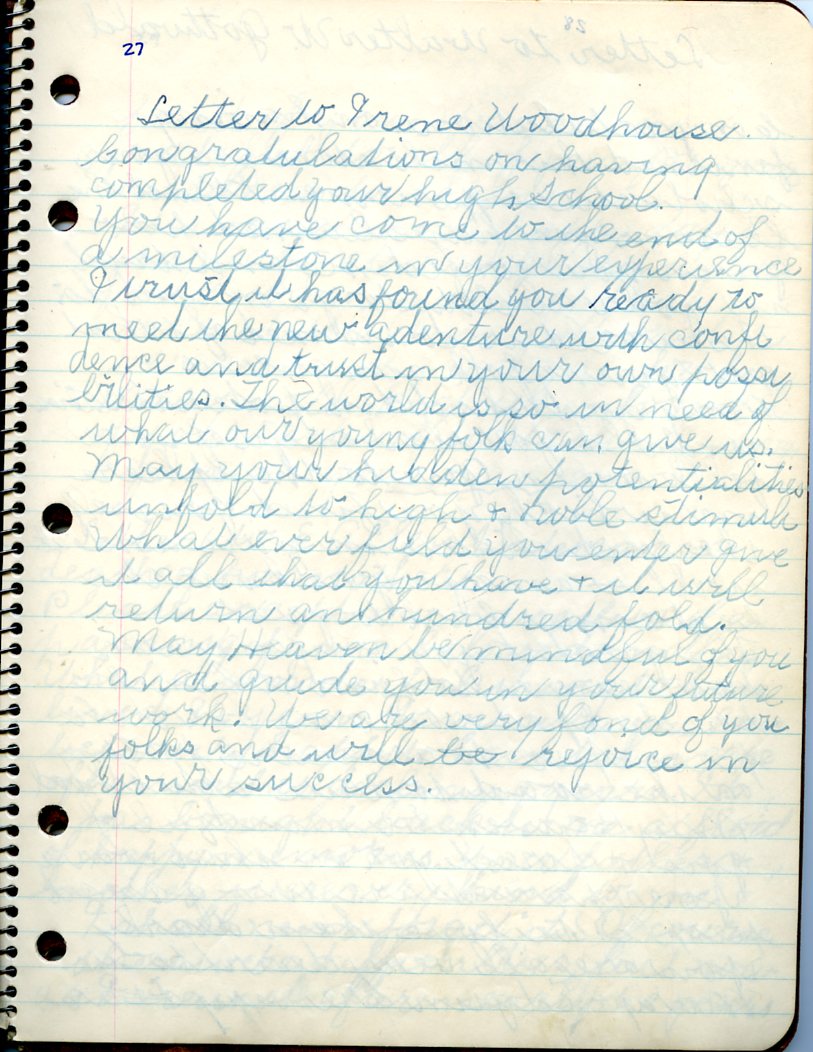 27
Letter to Irene Woodhouse.
Congratulations on having
completed your high School.
You have come to the end of
a milestone in your experience
I trust it has found you ready to
meet the new adenture with confi
dence and trust in your own possi
bilities. The world is so in need of
what our young folk can give us.
May your hidden potentialities
unfold to high & noble stimuli
What ever field you enter give
it all that you have & it will
return an hundred fold.
May Heaven be mindful of you
and guide you in your future
work. We are very fond of you
folks and will be rejoice in
your success.